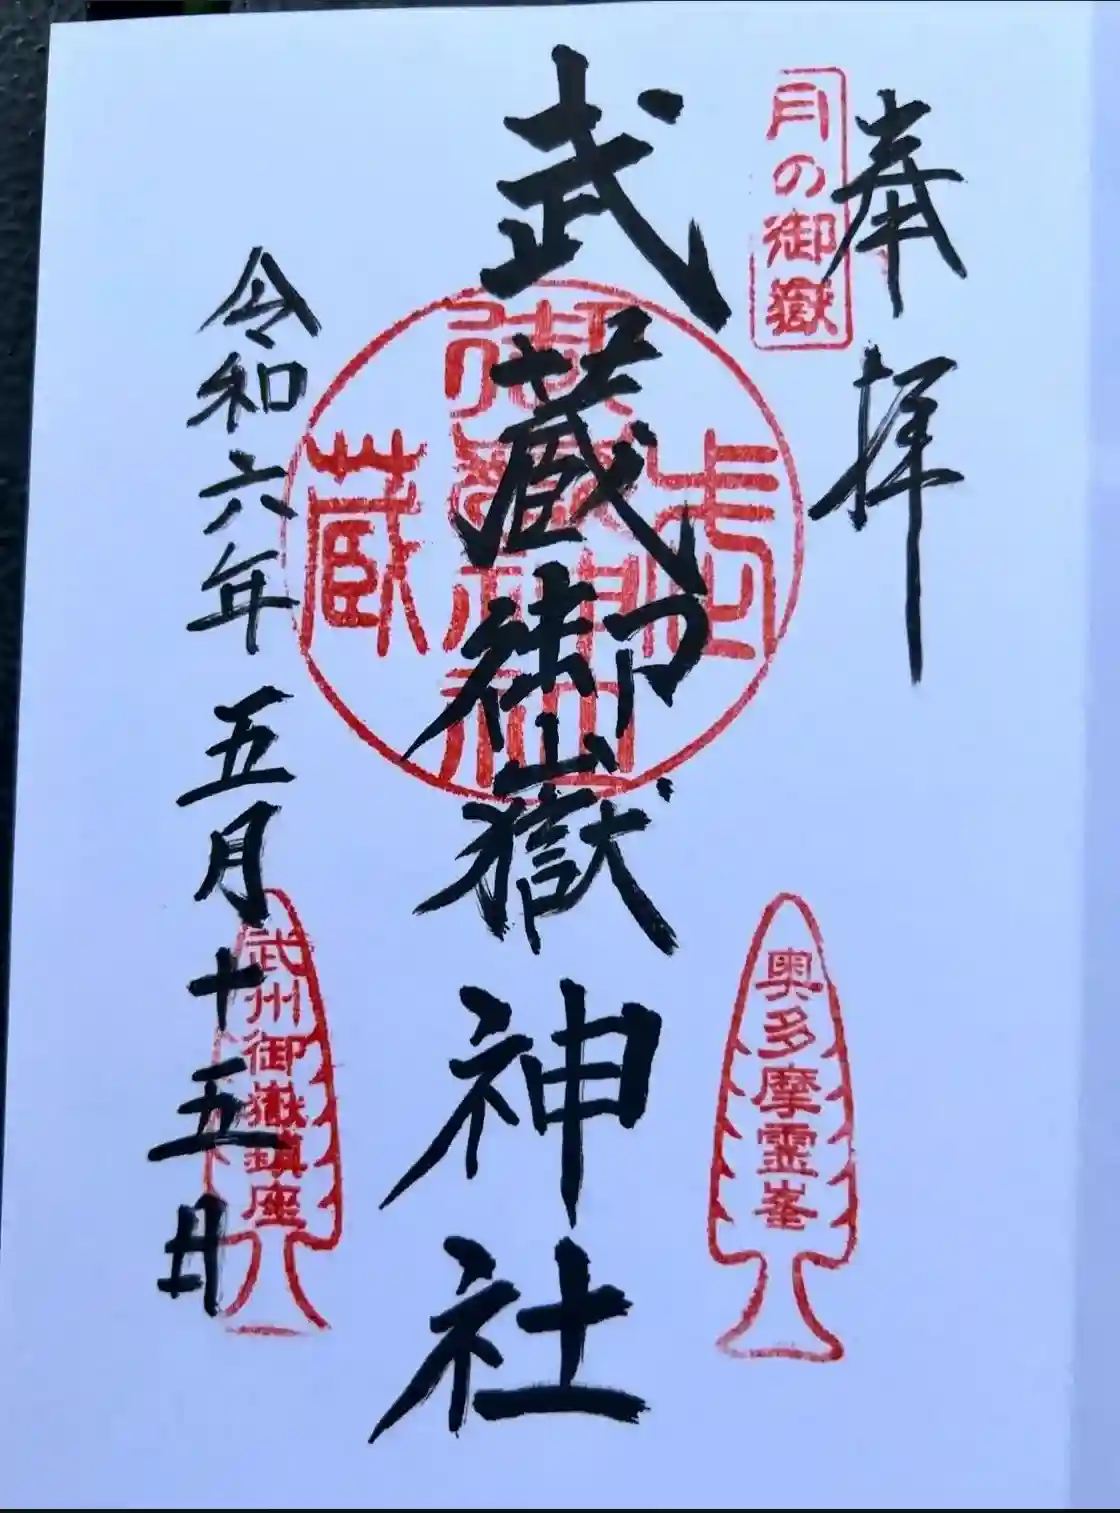 奉拝
月の御嶽
奥多摩霊峯
武蔵御嶽神社
武蔵
御嶽神社
令和六年五月十五日
武州御嶽鎮座